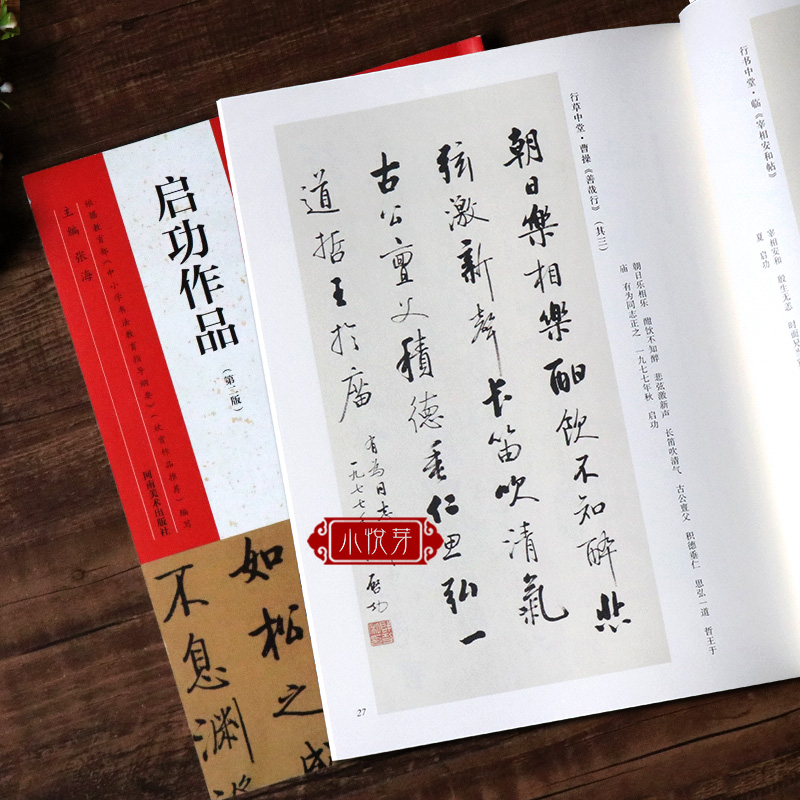 行书中堂·临《宰相安和帖》
宰相安和 殷生无恙
夏 启功
行草中堂·曹操《善哉行》(其三)
朝日乐相乐 酣饮不知醉 悲弦激新声 长笛吹清气 古公亶父 积德垂仁 思弘一道 哲王于
庙 有为同志正之 一九七七年秋 启功
朝日樂相樂酣飲不知醉悲
弦激新聲長笛吹清氣
古公亶父積德垂仁思弘一
道哲王於庿
有為同志
一九七七
啓功
小悦芽
27
启功作品
(第三版)
主编 张海
根据教育部《中小学书法教育指导纲要》(欣赏作品推荐)编写
河南美术出版社
如松之
不息渊